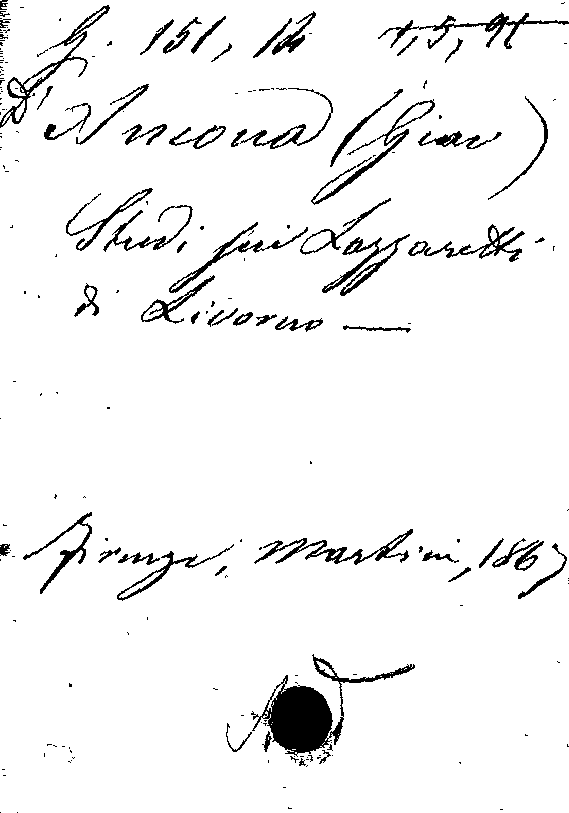 G. 151, 12
D'Ancona (Giac)
Studi sui Lazzaretti
di Livorno —
Firenze, Martini, 1867